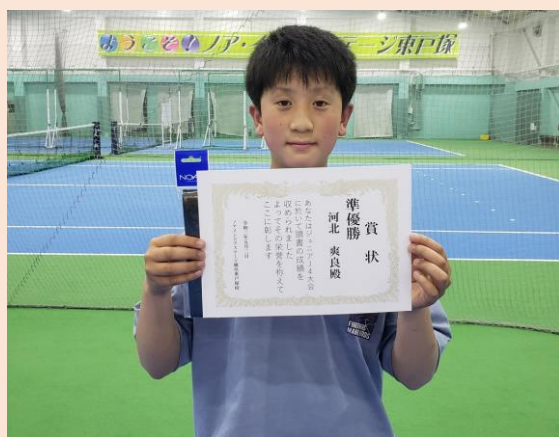 ようこそ!ノア・
ージ東戸塚
NOA
賞状
準優勝
河北 爽良殿
あなたはジュニアJ4大会
に於いて頭書の成績を
収められました
よってその栄誉を称えて
ここに彰します